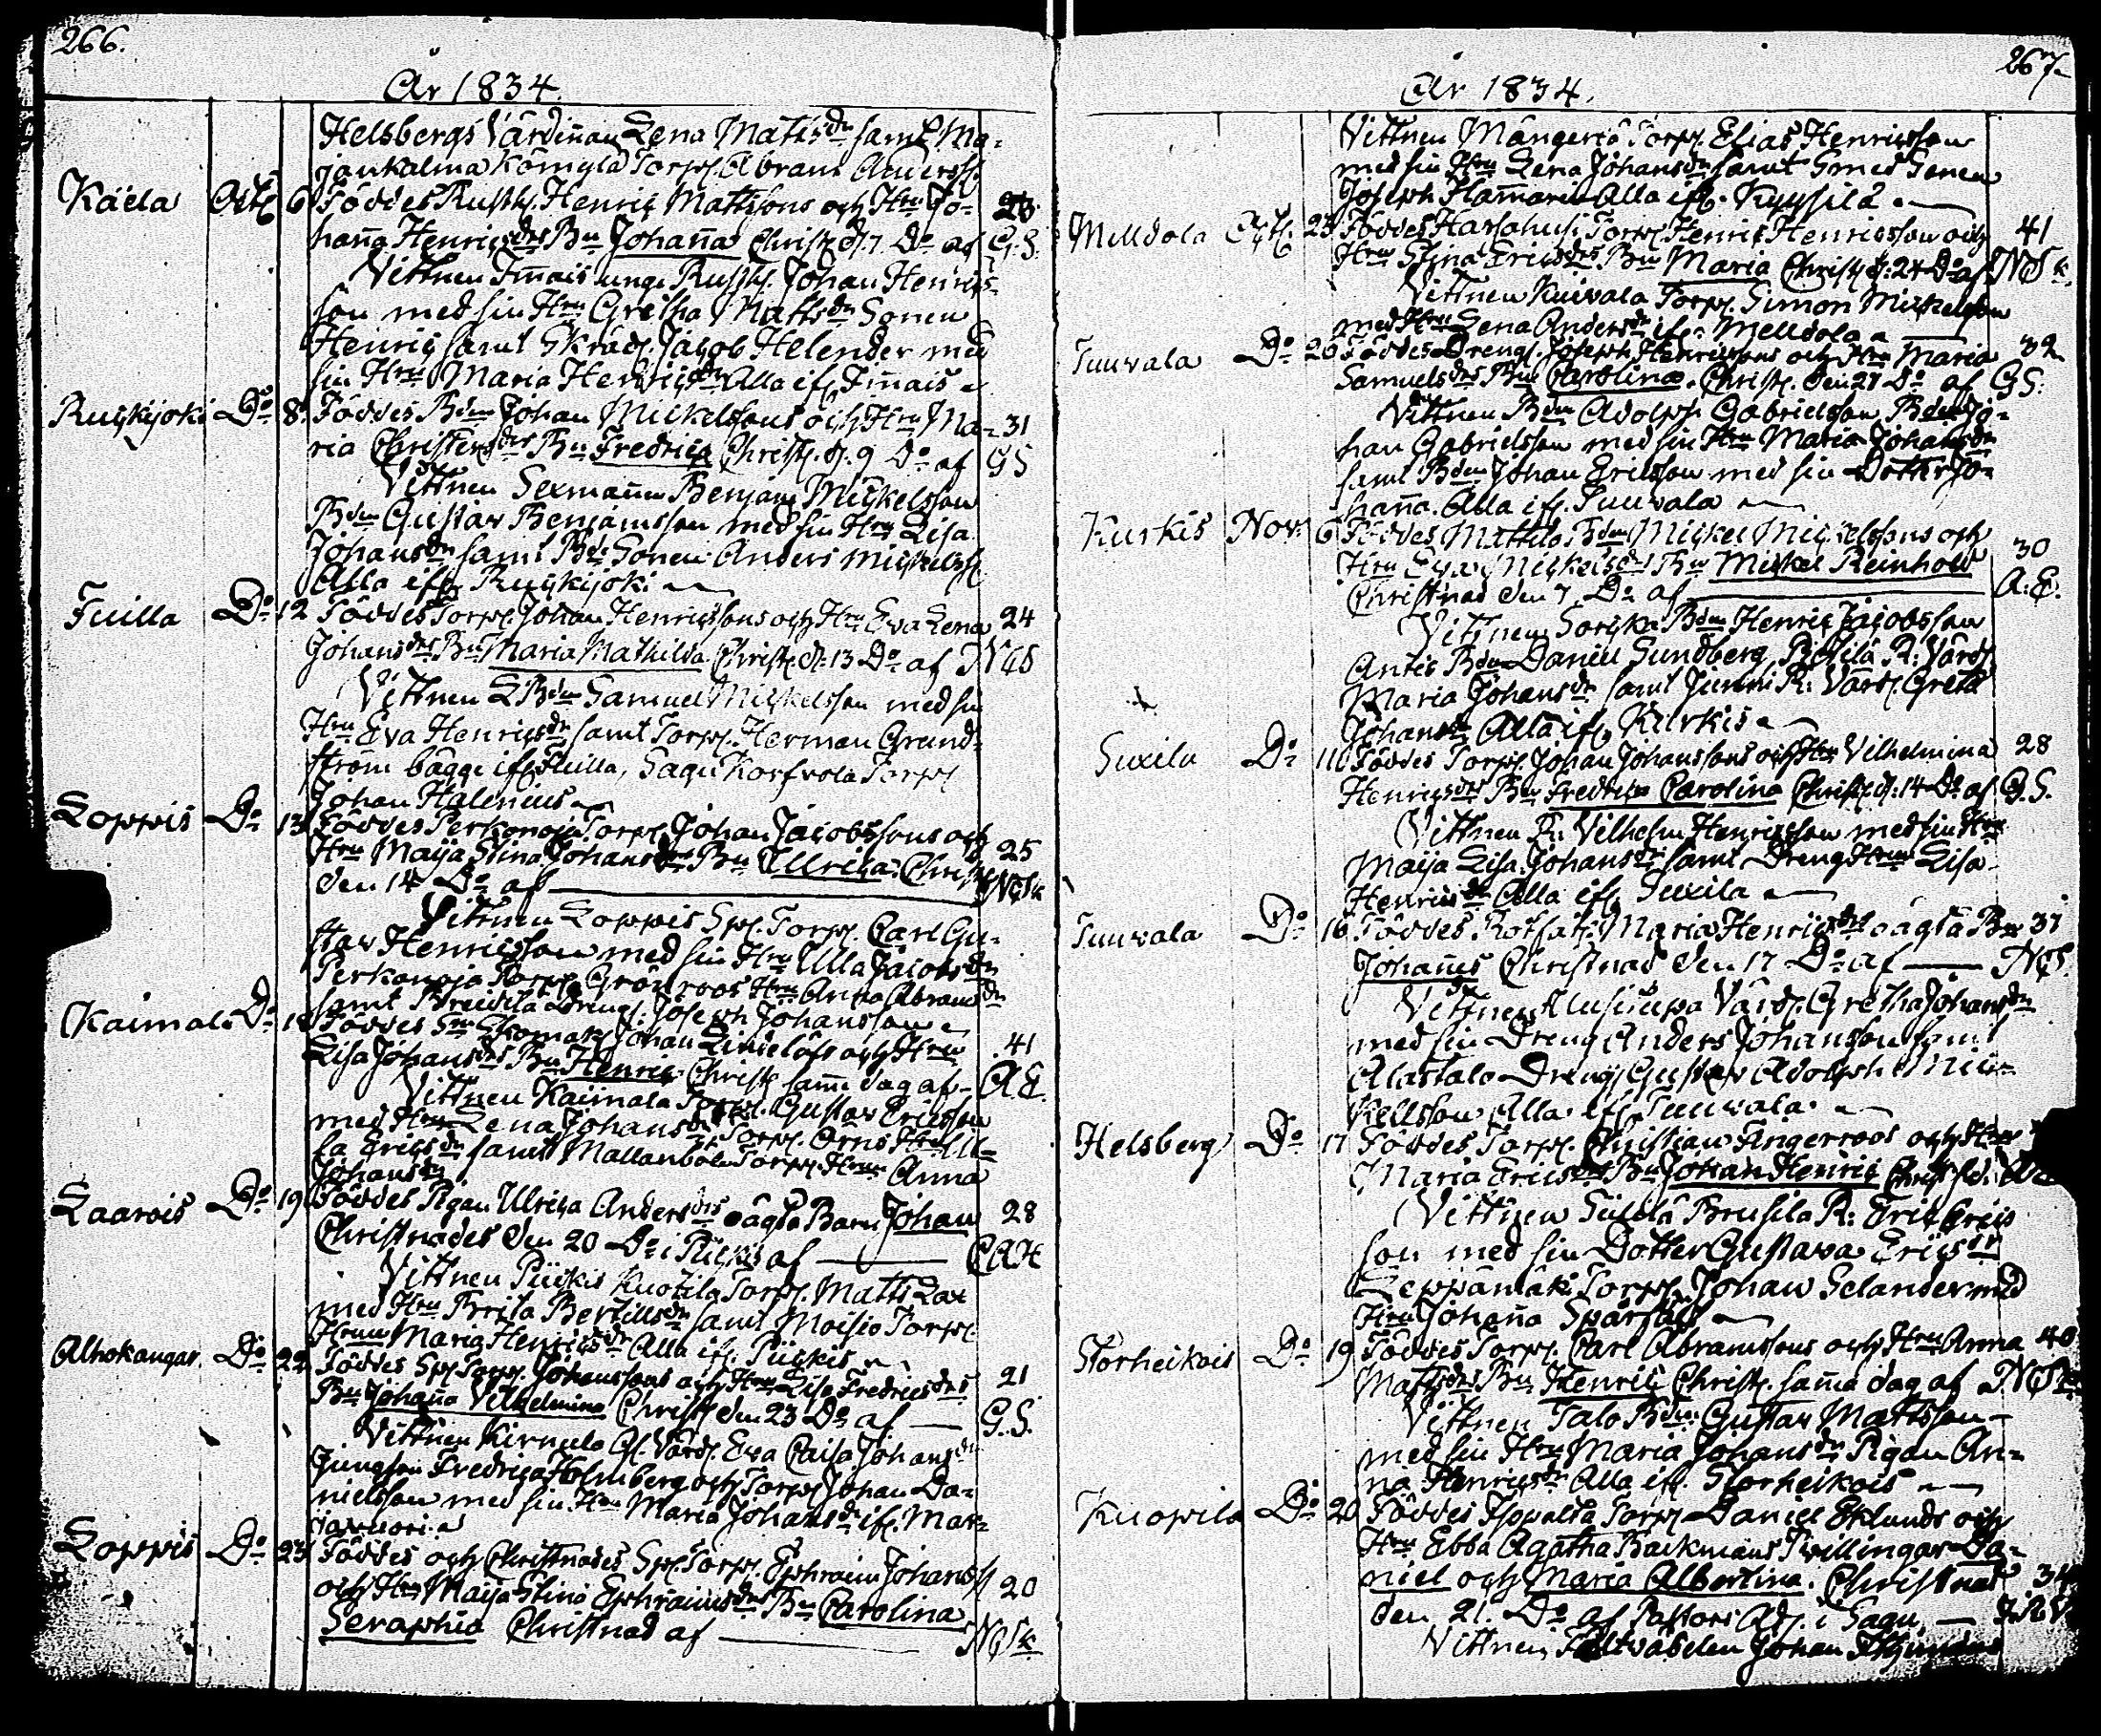 266.
År 1834.
Helsbergs Värdinnan Lena Matts dr samt Ma-
jankalma Kömylä Torp. Abram Anderss.
Käela Octb 6 Föddes Rusth. Henric Mattssons och Hru Jo- 26
hanna Henrics drs Bn Johanna Christ. d. 7 Do af G.S.
Vittnen Immais unge Rusth. Johan Henrics-
son med sin Hru Gretha Matts dr Sonen
Henric samt Skräd. Jacob Helender med
sin Hru Maria Henrics dr Alla ifr. Immais
Ruskijoki Do 8 Föddes Bdn Johan Mickelssons och Hru Ma- 31
ria Christers drs Bn Fredrica Christ. d. 9 Do af GS
Vittnen Sexmannen Benjam Mickelsson
Bdn Gustav Benjamsson med sin Hru Lisa
Johans dr samt Bd. Sonen Anders Mickelss.
Alla ifr. Ruskijoki
Tuilla Do 12 Föddes Torp. Johan Henricssons och Hru Eva Lena 24
Johans drs Bn Maria Mathilda Christ. d. 13 Do af
Vittnen Bdn Samuel Mickelsson med sin
Hru Eva Henrics dr samt Torp. Herman Grund-
ström bägge ifr. Tuilla, Sagu Korfvola Torp.
Johan Halenius
Loppis Do 13 Föddes Perkonoja Torp. Johan Jacobssons och
Hru Maija Stina Johans drs Bn Ullrica Christ. 25
den 14 Do af
Vittnen Loppis Sp. Torp. Carl Gu-
stav Henricsson med sin Hru Ulla Jacobs dr
Perkonoja Torp. Grönroos Hru Anna Abrams dr
samt Dreng. Joseph Johansson
Kaimala Do 18 Föddes Skomak. Johan Lindelöfs och Hru 41
Lisa Johans drs Bn Henric Christ. samma dag af A.E.
Vittnen Kaimala Torp. Gustav Ericsson
med Hru Lena Johans dr Torp. Örns Hru Ul-
la Erics dr samt Mallanböle Torp. Hru Anna
Johans dr
Laarois Do 19 Föddes Pigan Ulrica Anders drs oägta Barn Johan 28
Christnades den 20 Do i Piickis af CAH
Vittnen Piickis Kuotila Torp. Matts Lax
med Hru Brita Bertills dr samt Moisio Torp.
Hrun Maria Henrics dr Alla ifr. Piickis
Alhokangar. Do 22 Föddes Sp. Torp. Johanssons och Hru Lisa Fredrics drs 21
Bn Johanna Vilhelmina Christ. den 23 Do af G.S.
Vittnen Kirnula Gl. Värd. Eva Caisa Johans dr
Jungfrun Fredrica Holmberg och Torp. Johan Da-
nielsson med sin Hru Maria Johans dr ifr. Mar-
javuori
Loppis Do 23 Föddes och Christnades Sp. Torp. Ephraim Johans. 20
och Hru Maija Stina Ephraims drs Bn Carolina
Seraphia Christnad af
267.
År 1834.
Vittnen Mångeriö Torp. Elias Henricsson
med sin Hru Lena Johans dr samt Smed Genen
Joseph Hammarin Alla ifr. Kyysilä
Melldola Octb. 23 Föddes Torp. Henric Henricsson och 41
Hru Stina Erics drs Bn Maria Christ. d. 24 Do af
Vittnen Kuivala Torp. Simon Mickelsson
med Hru Lena Anders dr ifr. Melldola
Tuuvala Do 26 Föddes Dreng. Joseph Henricssons och Hru Maria 32
Samuels drs Bn Carolina. Christ. den 27 Do af GS.
Vittnen Bdn Adolph Gabrielsson Bdn Jo-
han Gabrielsson med sin Hru Maria Johans dr
samt Bdn Johan Ericsson med sin Dotter Jo-
hanna. Alla ifr. Tuuvala
Kurkis Nov. 6 Föddes Mattila Bdn Mickel Mickelssons och 30
Hru Eva Mickels drs Bn Mickel Reinhold
Christnad den 7 Do af A.E.
Vittnen Soricka Bdn Henric Jacobsson
Anttis Bdn Daniel Sundberg, R. Värd.
Maria Johans dr samt Junni R. Värd. Greta
Johans dr Alla ifr. Kurkis
Suxila Do 11 Föddes Torp. Johan Johanssons och Hru Vilhelmina 28
Henrics drs Bn Fredrica Carolina Christ. d. 14 Do af G.S.
Vittnen R. Vilhelm Henricsson med sin Hru
Maija Lisa Johans dr samt Dreng Hrun Lisa
Henrics dr Alla ifr. Suxila
Tuuvala Do 16 Föddes Maria Henrics drs oägta Bn 37
Johannes Christnad den 17 Do af
Vittnen Uusitupa Värd. Gretha Johans dr
med sin Dreng Anders Johansson samt
Alastalo Dreng Gustav Adolph Mic-
kelsson Alla ifr. Tuuvala
Helsberg Do 17 Föddes Torp. Christian Fingerroos och Hru
Maria Erics drs Bn Johan Henric Christ. d.
Vittnen Brusila R. Eric Erics
son med sin Dotter Gustava Erics dr
Leppämäki Torp. Johan Selander med
Hru Johanna
Storheikois Do 19 Föddes Torp. Carl Abramssons och Hru Anna 40
Matts drs Bn Henric Christ. samma dag af
Vittnen Talo Bdn Gustav Mattsson
med sin Hru Maria Johans dr Pigan An-
na Henrics dr Alla ifr. Storheikois
Kuopila Do 20 Föddes Isopalta Torp. Daniel Eklunds och
Hru Ebba Agatha Backmans Tvillingar Da-
niel och Maria Albertina. Christnad 34
den 21. Do af Pastors Adj. i Sagu,
Vittnen Fältväbelen Johan